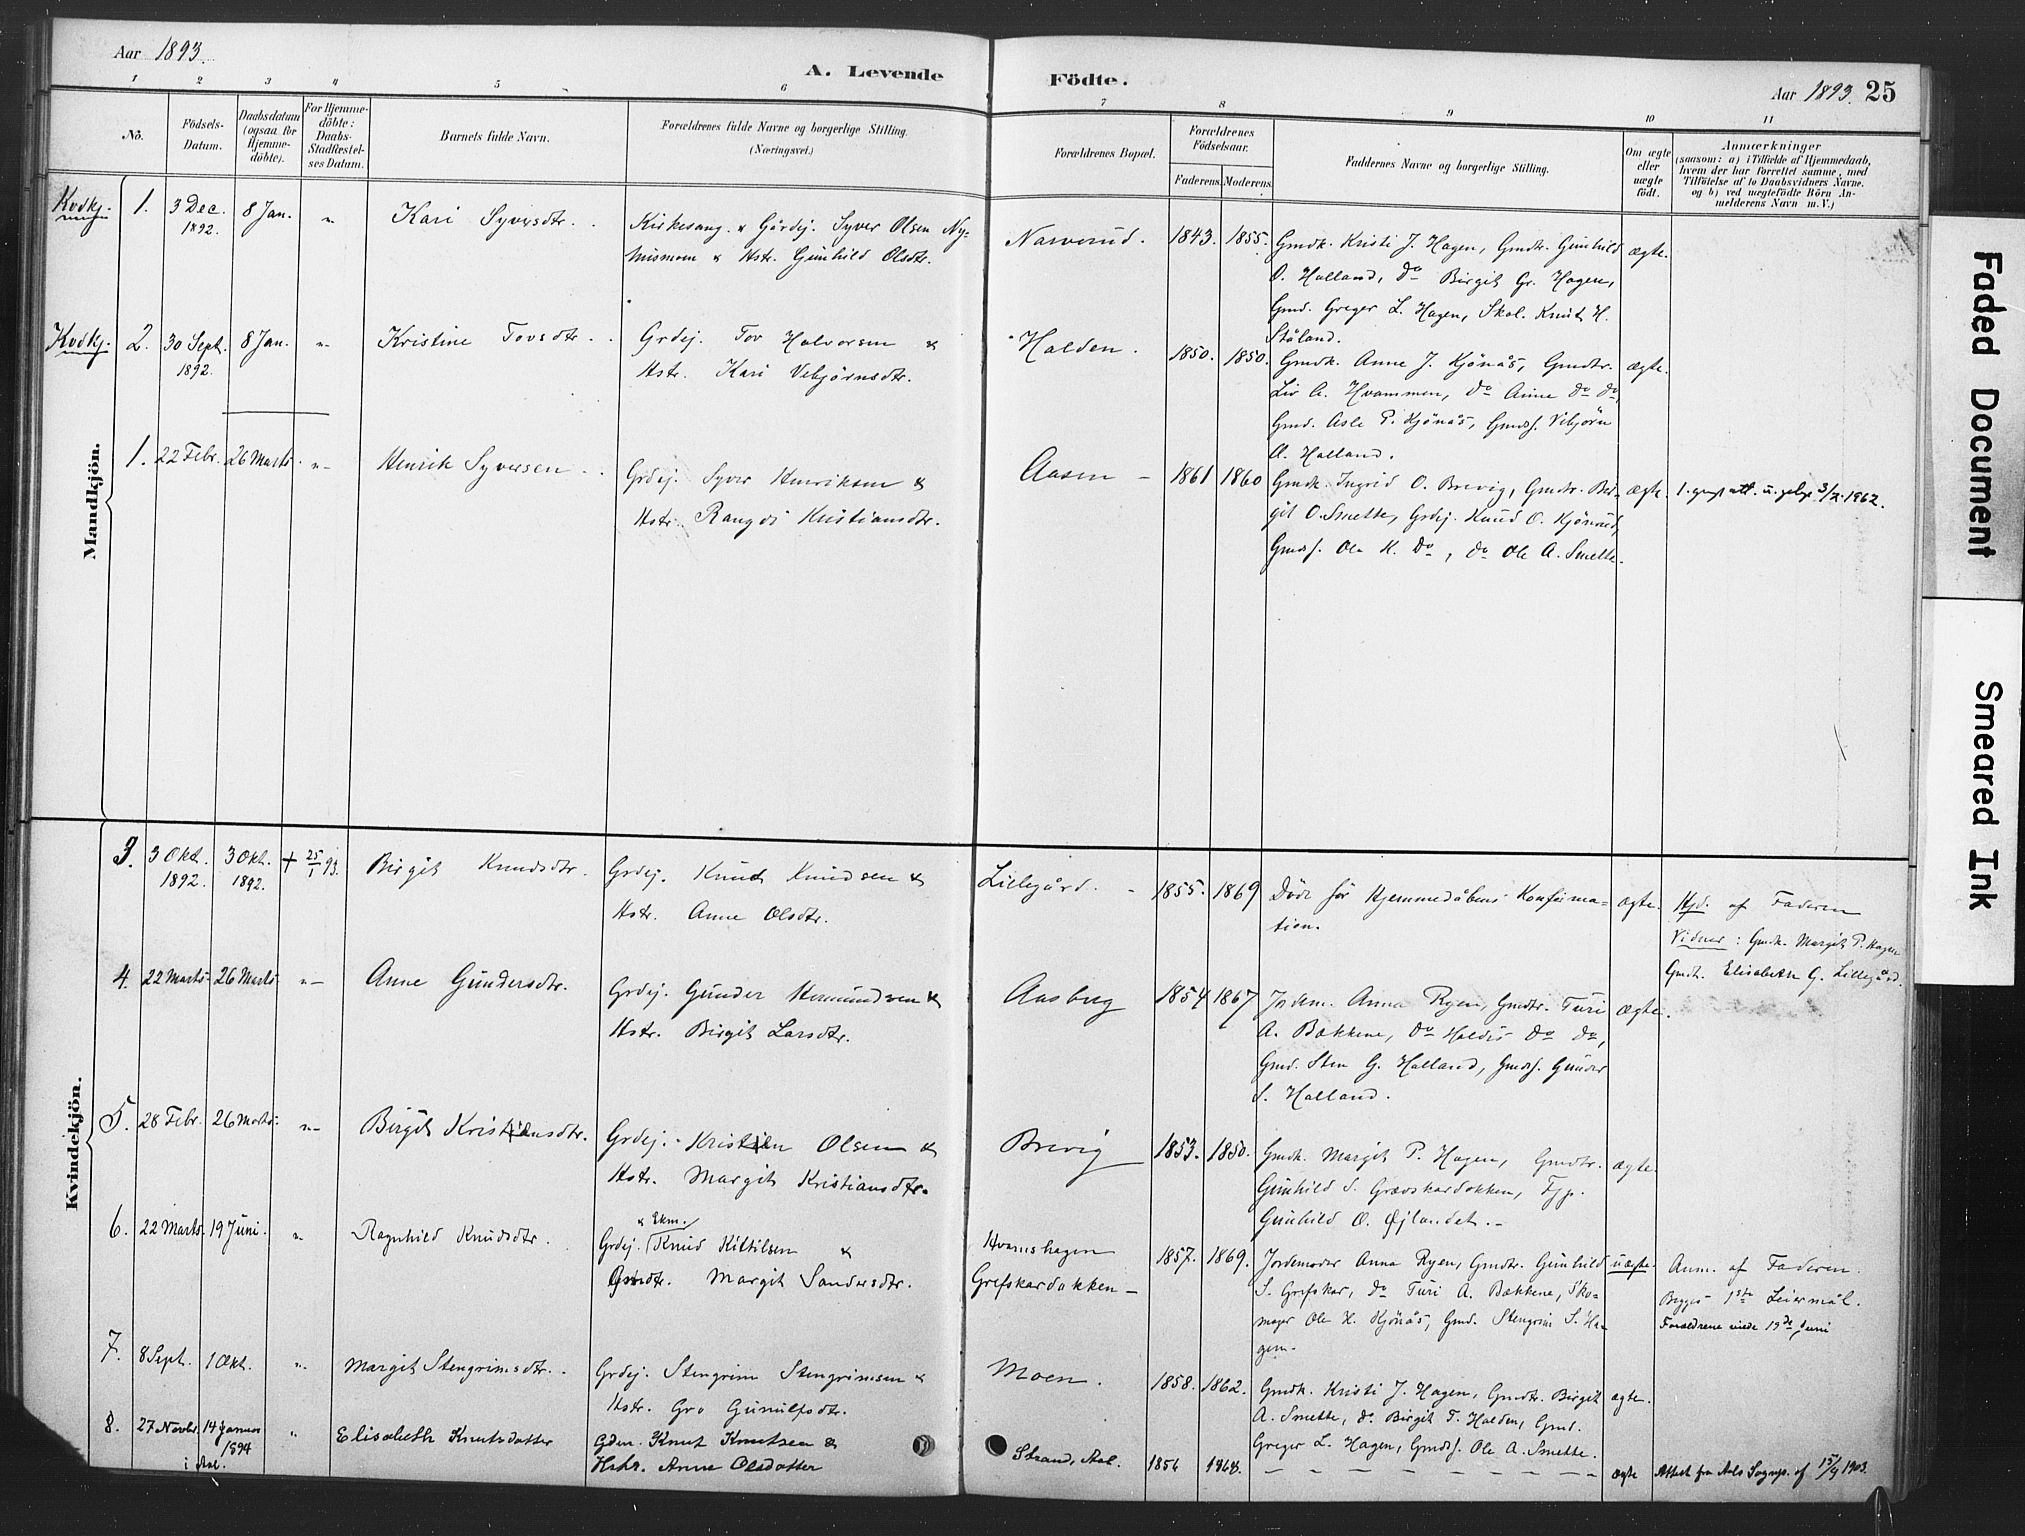 Aar 1893.
A. Levende Födte.
Aar 1893. 25
1 2 3 4 5 6 7 8 9 10 11
No.
Födsels-Datum.
Daabsdatum (ogsaa for Hjemme-döbte).
For Hjemme-döbte: Daabs-Stadfæstel-ses Datum.
Barnets fulde Navn.
Forældrenes fulde Navne og borgerlige Stilling. (Næringsvei.)
Forældrenes Bopæl.
Forældrenes Födselsaar.
Faderens. Moderens.
Faddernes Navne og borgerlige Stilling.
Om ægte eller uægte födt.
Anmærkninger
(saasom: a) i Tilfælde af Hjemmedaab,
hvem der har forrettet samme, med
Tilföielse af to Daabsvidners Navne.
og b) ved uægtefödte Börn An-
melderens Navn m. V.)
Mandkjön.
Kvdkj.
1. 3 Dec. 1892. 8 Jan. " Kari Syversdtr.
Kirkesang. & Gårdej. Syver Olsen Ny-
mismoen & Hstr. Gunhild Olsdtr.
Narverud. 1843. 1855.
Gmdk. Kristi J. Hagen, Gmdtr. Gunhild
O. Halland, do Birgit Gr. Hagen,
Gmd. Greger L. Hagen, Skol. Knut H.
Ståland.
ægte.
Kvdkj.
2. 30 Sept. 1892. 8 Jan. " Kristine Tovsdtr.
Grdej. Tov Halvorsen &
Hstr. Kari Vebjørnsdtr.
Halden. 1850. 1850.
Gmdk. Anne J. Kjönås, Gmdtr.
Liv A. Hvammen, do Anne do do,
Gmd. Asle P. Kjönås, Gmdsf. Vibjörn
A. Halland.
ægte.
1. 22 Febr. 26 Marts " Henrik Syversen
Grdej. Syver Henriksen &
Hstr. Rangdi Kristiansdtr.
Aasen 1861 1860
Gmdk. Ingrid O. Brevig, Gmdtr. Bir-
git O. Smette, Grdej. Knud O. Kjönås,
Gmdsf. Ole K. do, do Ole A. Smette.
ægte.
Kvindekjön.
3. 3 Okt. 1892. 3 Okt. 1892. + 25/1 93. Birgit Knudsdtr.
Grdej. Knud Knudsen &
Hstr. Anne Olsdtr.
Lillegård. 1855. 1869
Döde för Hjemmedåbens Konfirma-
tion.
ægte.
Hjd. af Faderen
Vidner: Gmdk. Margit P. Hagen
Gmdt. Elisabeth G. Lillegård.
4. 22 Marts 26 Marts " Anne Gundersdtr.
Grdej. Gunder Hermundsen &
Hstr. Birgit Larsdtr.
Aasbug 1854 1867
Jordem. Anna Ryen, Gmdtr. Turi
A. Bækkene, do Haldis do do,
Gmd. Sten G. Halland, Gmdsf. Gunder
S. Halland.
ægte.
5. 28 Febr. 26 Marts " Birgit Kristensdtr.
Grdej. Kristen Olsen &
Hstr. Margit Kristiansdtr.
Brevig 1853. 1850.
Gmdk. Margit P. Hagen, Gmdtr.
Gunhild S. Grævskardokken, Tjp.
Gunhild O. Øjlandet.
ægte
6. 22 Marts 19 Juni. " Ragnhild Knudsdtr.
& Ekm.
Grdej. Knud Kittilsen &
Gmdtr. Margit Sandersdtr.
Hvamshagen
Grefskardokken
1857. 1869.
Jordemoder Anna Ryen, Gmdtr. Gunhild
S. Grefskar, do Turi A. Bækkene, Sko-
mager Ole K. Kjönås, Gmd. Stengrim S. Ha-
gen.
uægte.
Anm. af Faderen.
Begges 1ste Leiermål.
Forældrene viede 19de Juni
7. 8 Sept. 1 Okt. " Margit Stengrimsdtr.
Grdej. Stengrim Stengrimsen &
Hstr. Gro Gunulfsdtr.
Moen. 1858. 1862.
Gmdk. Kristi J. Hagen, Gmdtr. Birgit
A. Smette, do Birgit T. Halden, Gmd.
Greger L. Hagen, Gmdsf. Ole A. Smette.
ægte.
8. 27 Novbr. 14 Januar 1894 i Aal. " Elisabeth Knutsdatter
Gdm. Knut Knutsen &
Hstr. Anne Olsdatter
Strand, Aal. 1856 1868.
ægte
Attest fra Aals Sognep. af 15/9 1903.
Faded Document
Smeared Ink